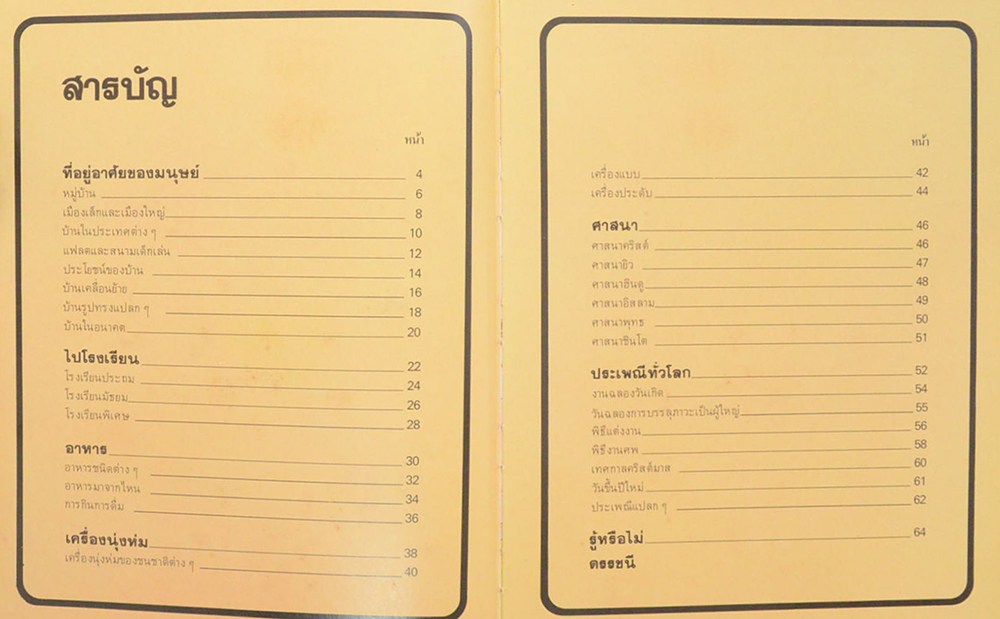 สารบัญ
หน้า
ที่อยู่อาศัยของมนุษย์ 4
หมู่บ้าน 6
เมืองเล็กและเมืองใหญ่ 8
บ้านในประเทศต่าง ๆ 10
แฟลตและสนามเด็กเล่น 12
ประโยชน์ของบ้าน 14
บ้านเคลื่อนย้าย 16
บ้านรูปทรงแปลก ๆ 18
บ้านในอนาคต 20
ไปโรงเรียน 22
โรงเรียนประถม 24
โรงเรียนมัธยม 26
โรงเรียนพิเศษ 28
อาหาร 30
อาหารชนิดต่าง ๆ 32
อาหารมาจากไหน 34
การกินการดื่ม 36
เครื่องนุ่งห่ม 38
เครื่องนุ่งห่มของชนชาติต่าง ๆ 40
หน้า
เครื่องแบบ 42
เครื่องประดับ 44
ศาสนา 46
ศาสนาคริสต์ 46
ศาสนายิว 47
ศาสนาฮินดู 48
ศาสนาอิสลาม 49
ศาสนาพุทธ 50
ศาสนาชินโต 51
ประเพณีทั่วโลก 52
งานฉลองวันเกิด 54
วันฉลองการบรรลุภาวะเป็นผู้ใหญ่ 55
พิธีแต่งงาน 56
พิธีงานศพ 58
เทศกาลคริสต์มาส 60
วันขึ้นปีใหม่ 61
ประเพณีแปลก ๆ 62
รู้หรือไม่ 64
ดรรชนี